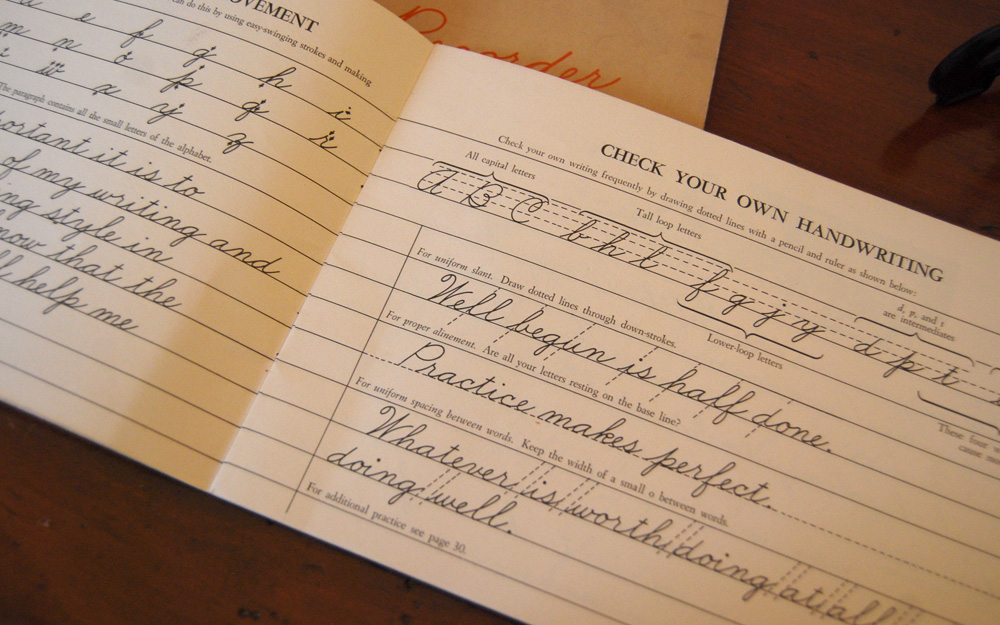 Recorder
MOVEMENT
can do this by using easy-swinging strokes and making
u e f g h i
m n o p q r
w x y z
The paragraph contains all the small letters of the alphabet.
important it is to
of my writing and
style in
that the
help me
CHECK YOUR OWN HANDWRITING
Check your own writing frequently by drawing dotted lines with a pencil and ruler as shown below:
All capital letters
Tall loop letters
d, p, and t
are intermediates
A B C b h l f g j y d p t
Lower-loop letters
These four
cause
For uniform slant. Draw dotted lines through down-strokes.
Well begun is half done.
For proper alinement. Are all your letters resting on the base line?
Practice makes perfect.
For uniform spacing between words. Keep the width of a small o between words.
Whatever is worth doing at all
doing well.
For additional practice see page 30.